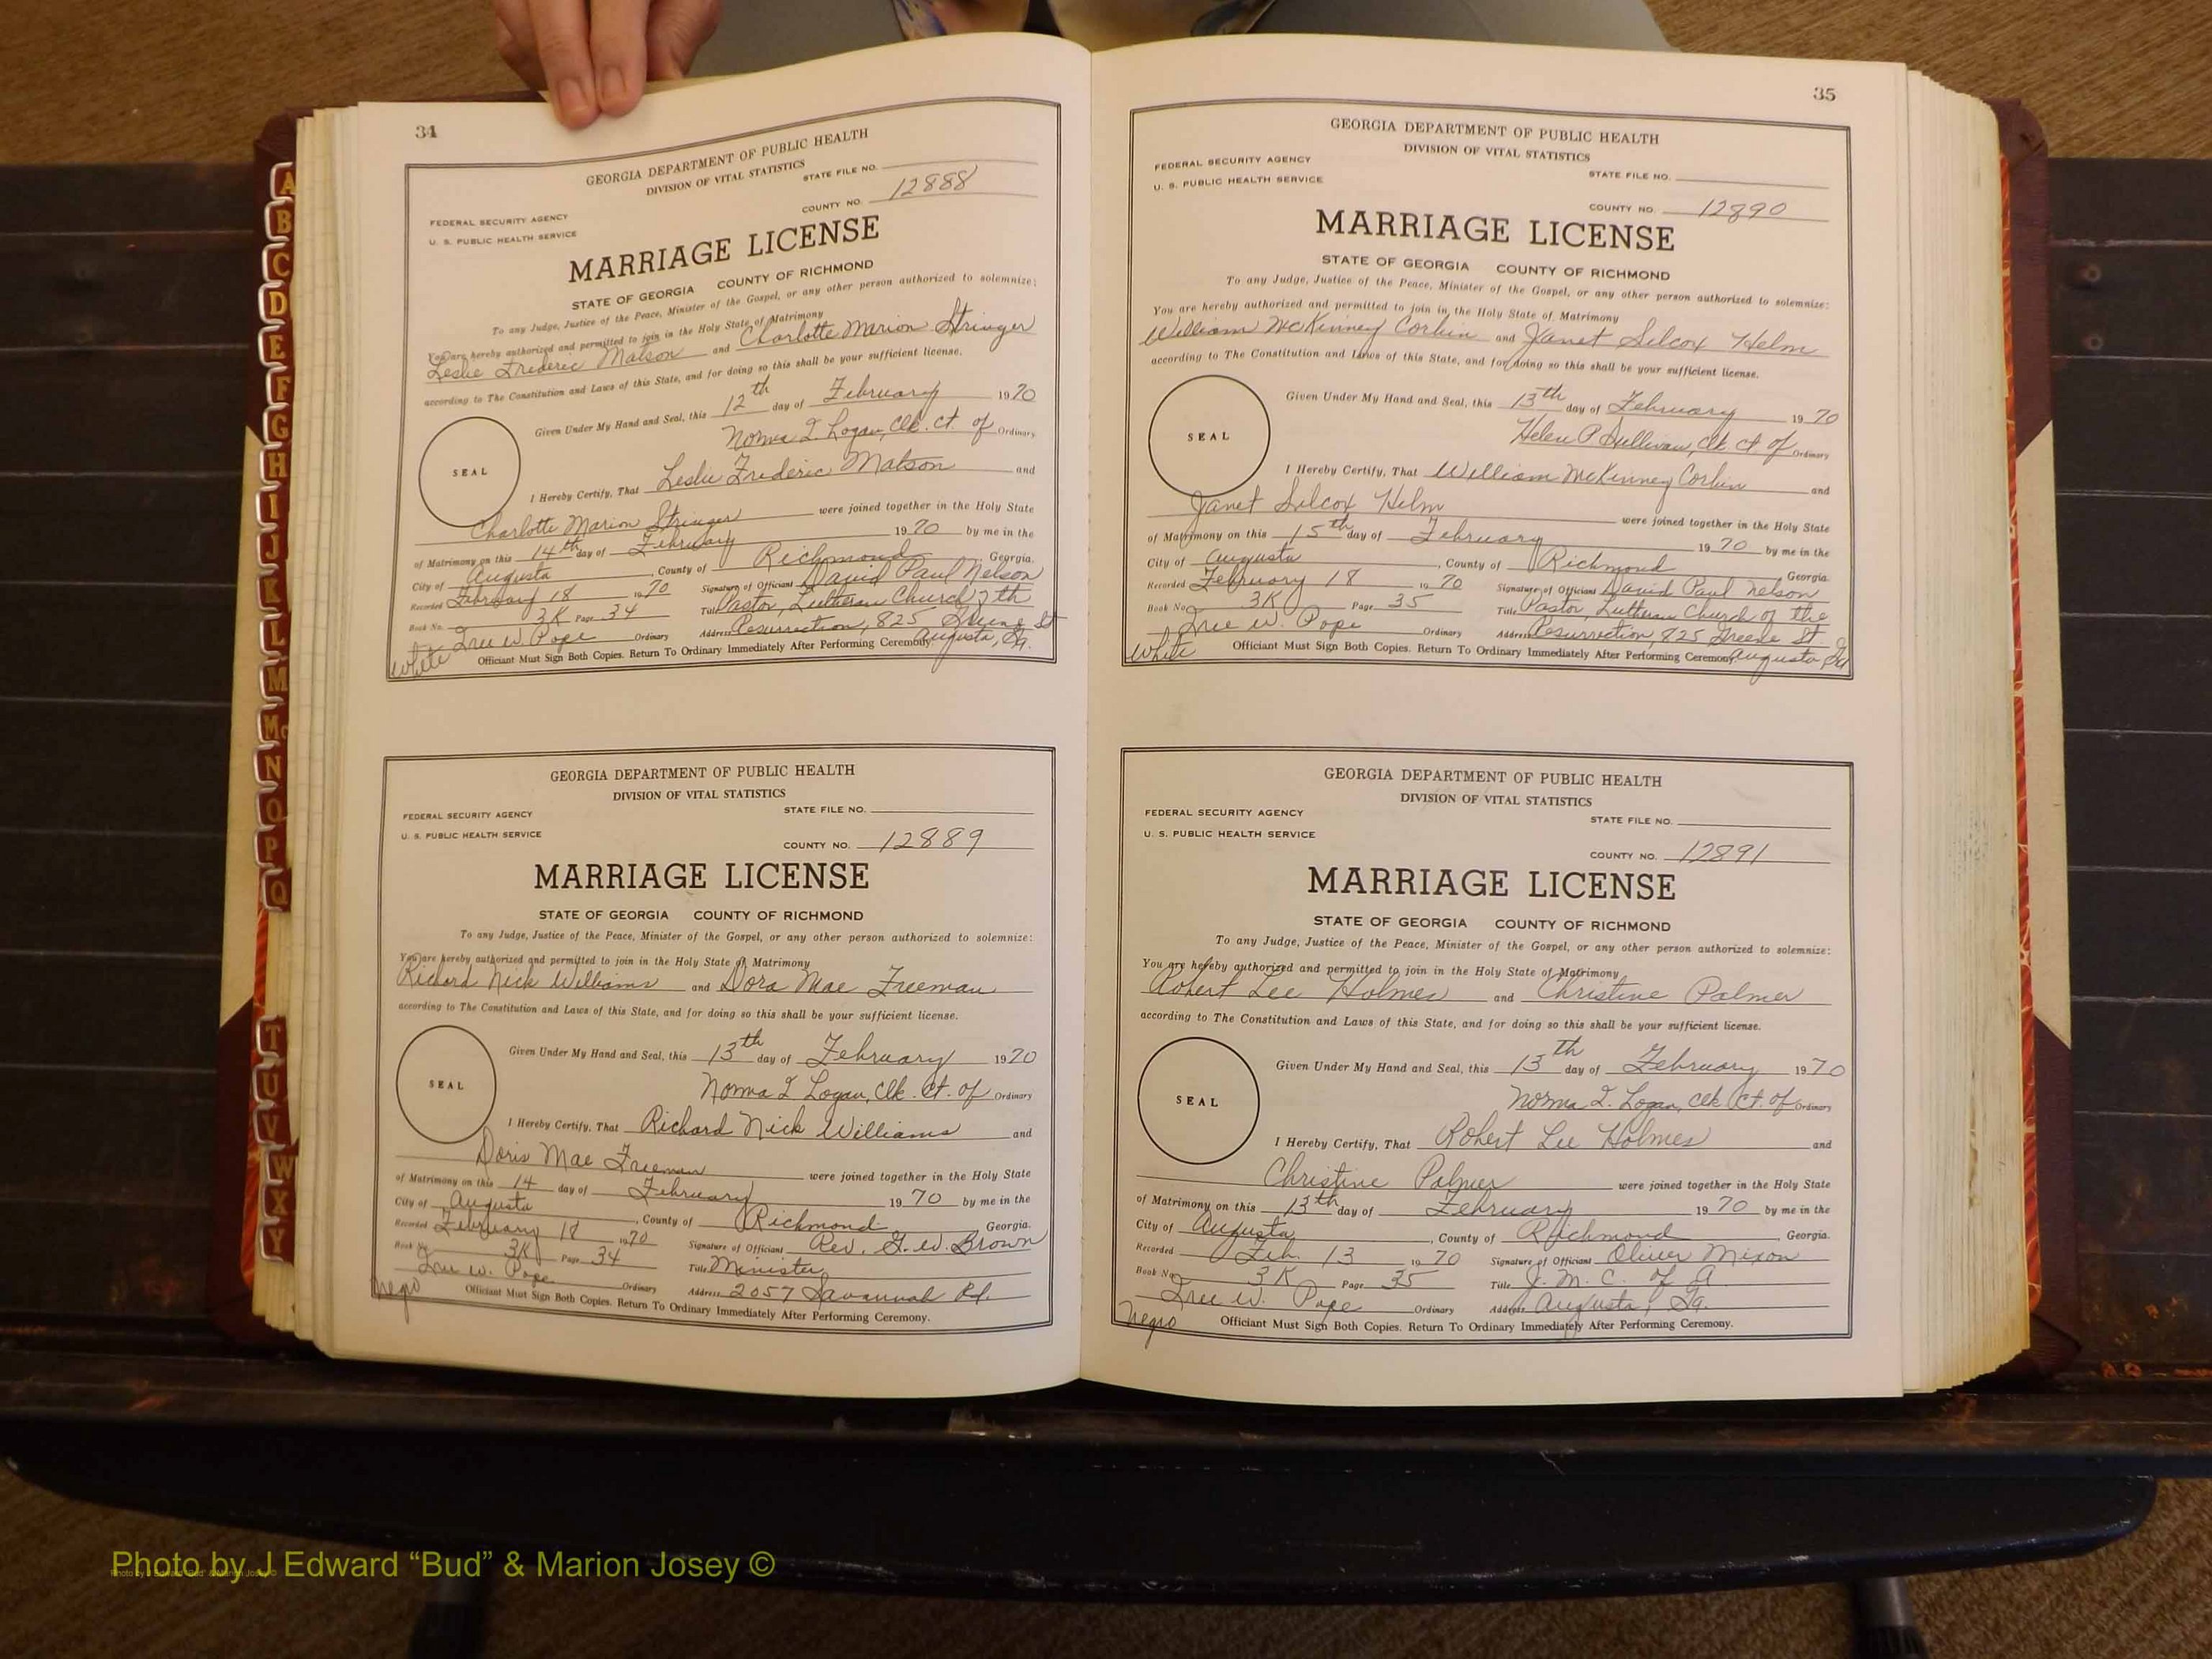 34
GEORGIA DEPARTMENT OF PUBLIC HEALTH
DIVISION OF VITAL STATISTICS
STATE FILE NO.
COUNTY NO. 12888
FEDERAL SECURITY AGENCY
U. S. PUBLIC HEALTH SERVICE
MARRIAGE LICENSE
STATE OF GEORGIA COUNTY OF RICHMOND
To any Judge, Justice of the Peace, Minister of the Gospel, or any other person authorized to solemnize:
You are hereby authorized and permitted to join in the Holy State of Matrimony
Leslie Frederic Matson and Charlotte Marion Stringer
according to The Constitution and Laws of this State, and for doing so this shall be your sufficient license.
Given Under My Hand and Seal, this 12th day of February 1970
Norma I. Logan, Clk. Ct. of Ordinary
SEAL
I Hereby Certify, That Leslie Frederic Matson and
Charlotte Marion Stringer were joined together in the Holy State
of Matrimony on this 14th day of February 1970 by me in the
City of Augusta, County of Richmond Georgia.
Recorded February 18 1970 Signature of Officiant David Paul Nelson
Book No. 3K Page 34 Title Pastor, Lutheran Church 7th
Tree W. Pope Ordinary Address Resurrection, 825 Greene St
Augusta, Ga.
White Officiant Must Sign Both Copies. Return To Ordinary Immediately After Performing Ceremony.
GEORGIA DEPARTMENT OF PUBLIC HEALTH
DIVISION OF VITAL STATISTICS
FEDERAL SECURITY AGENCY STATE FILE NO.
U. S. PUBLIC HEALTH SERVICE
COUNTY NO. 12889
MARRIAGE LICENSE
STATE OF GEORGIA COUNTY OF RICHMOND
To any Judge, Justice of the Peace, Minister of the Gospel, or any other person authorized to solemnize:
You are hereby authorized and permitted to join in the Holy State of Matrimony
Richard Nick Williams and Dora Mae Freeman
according to The Constitution and Laws of this State, and for doing so this shall be your sufficient license.
Given Under My Hand and Seal, this 13th day of February 1970
Norma I Logan, Clk. Ct. of Ordinary
SEAL
I Hereby Certify, That Richard Nick Williams and
Doris Mae Freeman were joined together in the Holy State
of Matrimony on this 14 day of February 1970 by me in the
City of Augusta, County of Richmond Georgia.
Recorded February 18 1970 Signature of Officiant Rev. G. W. Brown
Book No. 3K Page 34 Title Minister
Tree W. Pope Ordinary Address 2057 Savannah Rd.
Negro Officiant Must Sign Both Copies. Return To Ordinary Immediately After Performing Ceremony.
35
GEORGIA DEPARTMENT OF PUBLIC HEALTH
DIVISION OF VITAL STATISTICS
FEDERAL SECURITY AGENCY
U. S. PUBLIC HEALTH SERVICE
STATE FILE NO.
COUNTY NO. 12890
MARRIAGE LICENSE
STATE OF GEORGIA COUNTY OF RICHMOND
To any Judge, Justice of the Peace, Minister of the Gospel, or any other person authorized to solemnize:
You are hereby authorized and permitted to join in the Holy State of Matrimony
William McKinney Corbin and Janet Silcox Helm
according to The Constitution and Laws of this State, and for doing so this shall be your sufficient license.
Given Under My Hand and Seal, this 13th day of February 1970
Helen P Sullivan, Clk. ct. of Ordinary
SEAL
I Hereby Certify, That William McKinney Corbin and
Janet Silcox Helm were joined together in the Holy State
of Matrimony on this 15th day of February 1970 by me in the
City of Augusta, County of Richmond, Georgia.
Recorded February 18 1970 Signature of Officiant David Paul Nelson
Book No. 3K Page 35 Title Pastor, Lutheran Church of the
Tree W. Pope Ordinary Address Resurrection, 825 Greene St
White Officiant Must Sign Both Copies. Return To Ordinary Immediately After Performing Ceremony. Augusta Ga
GEORGIA DEPARTMENT OF PUBLIC HEALTH
DIVISION OF VITAL STATISTICS
FEDERAL SECURITY AGENCY STATE FILE NO.
U. S. PUBLIC HEALTH SERVICE
COUNTY NO. 12891
MARRIAGE LICENSE
STATE OF GEORGIA COUNTY OF RICHMOND
To any Judge, Justice of the Peace, Minister of the Gospel, or any other person authorized to solemnize:
You are hereby authorized and permitted to join in the Holy State of Matrimony
Robert Lee Holmes and Christine Palmer
according to The Constitution and Laws of this State, and for doing so this shall be your sufficient license.
Given Under My Hand and Seal, this 13th day of February 1970
Norma I. Logan, Clk Ct. of Ordinary
SEAL
I Hereby Certify, That Robert Lee Holmes and
Christine Palmer were joined together in the Holy State
of Matrimony on this 13th day of February 1970 by me in the
City of Augusta, County of Richmond, Georgia.
Recorded Feb. 13 1970 Signature of Officiant Oliver Mixon
Book No. 3K Page 35 Title J. M. C. of A.
Tree W. Pope Ordinary Address Augusta, Ga.
Negro Officiant Must Sign Both Copies. Return To Ordinary Immediately After Performing Ceremony.
A
B
C
D
E
F
G
H
I
J
K
L
M
Mc
N
O
P
Q
T
U
V
W
X
Y
Photo by J Edward “Bud” & Marion Josey ©
Photo by J Edward “Bud” & Marion Josey ©